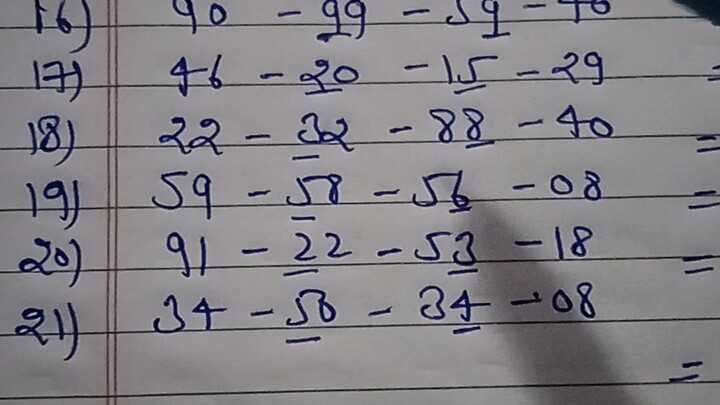 16) 90 - 99 - 59 - 40
17) 46 - 20 - 15 - 29 =
18) 22 - 32 - 88 - 40 =
19) 59 - 58 - 56 - 08 =
20) 91 - 22 - 53 - 18 =
21) 34 - 58 - 34 - 08 =